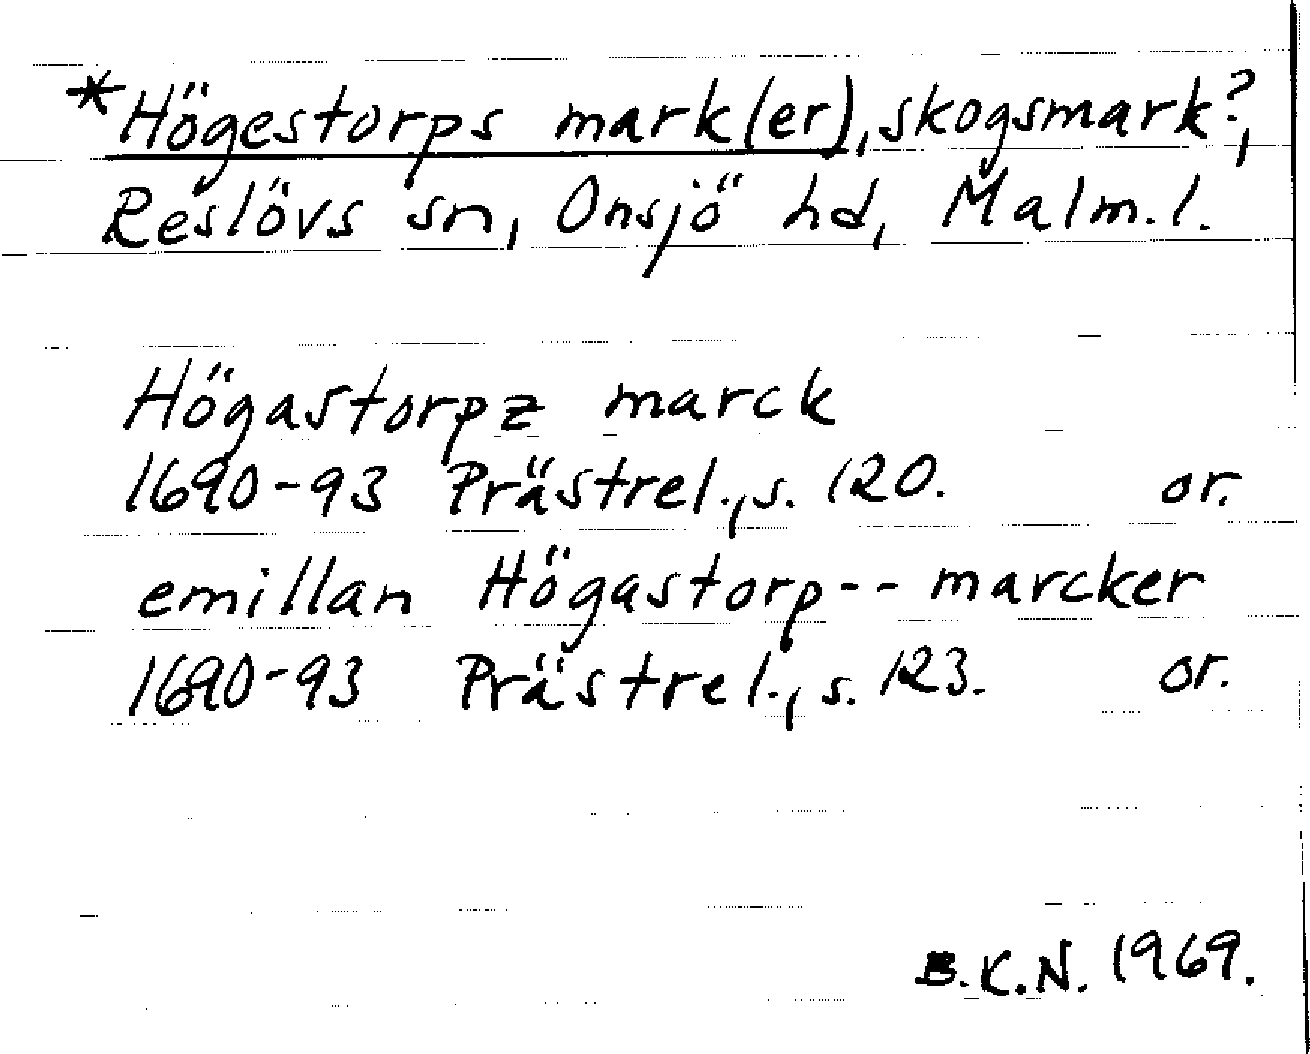 *Högestorps mark(er), skogsmark?,
Reslövs sn, Onsjö hd, Malm.l.
Högastorpz marck
1690-93 Prästrel., s. 120. or.
emillan Högastorp-- marcker
1690-93 Prästrel., s. 123. or.
B.K.N. 1969.